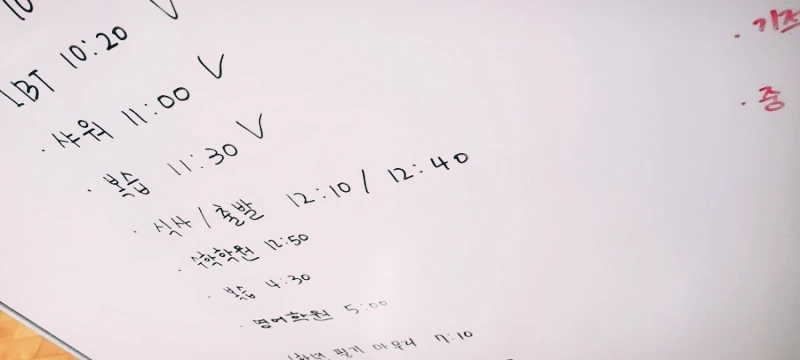 10
LBT 10:20 V
· 샤워 11:00 V
· 복습 11:30 V
· 식사 / 출발 12:10 / 12:40
· 수학학원 12:50
· 복습 4:30
· 영어학원 5:00
필기 마무리 7:10
· 기조
· 중